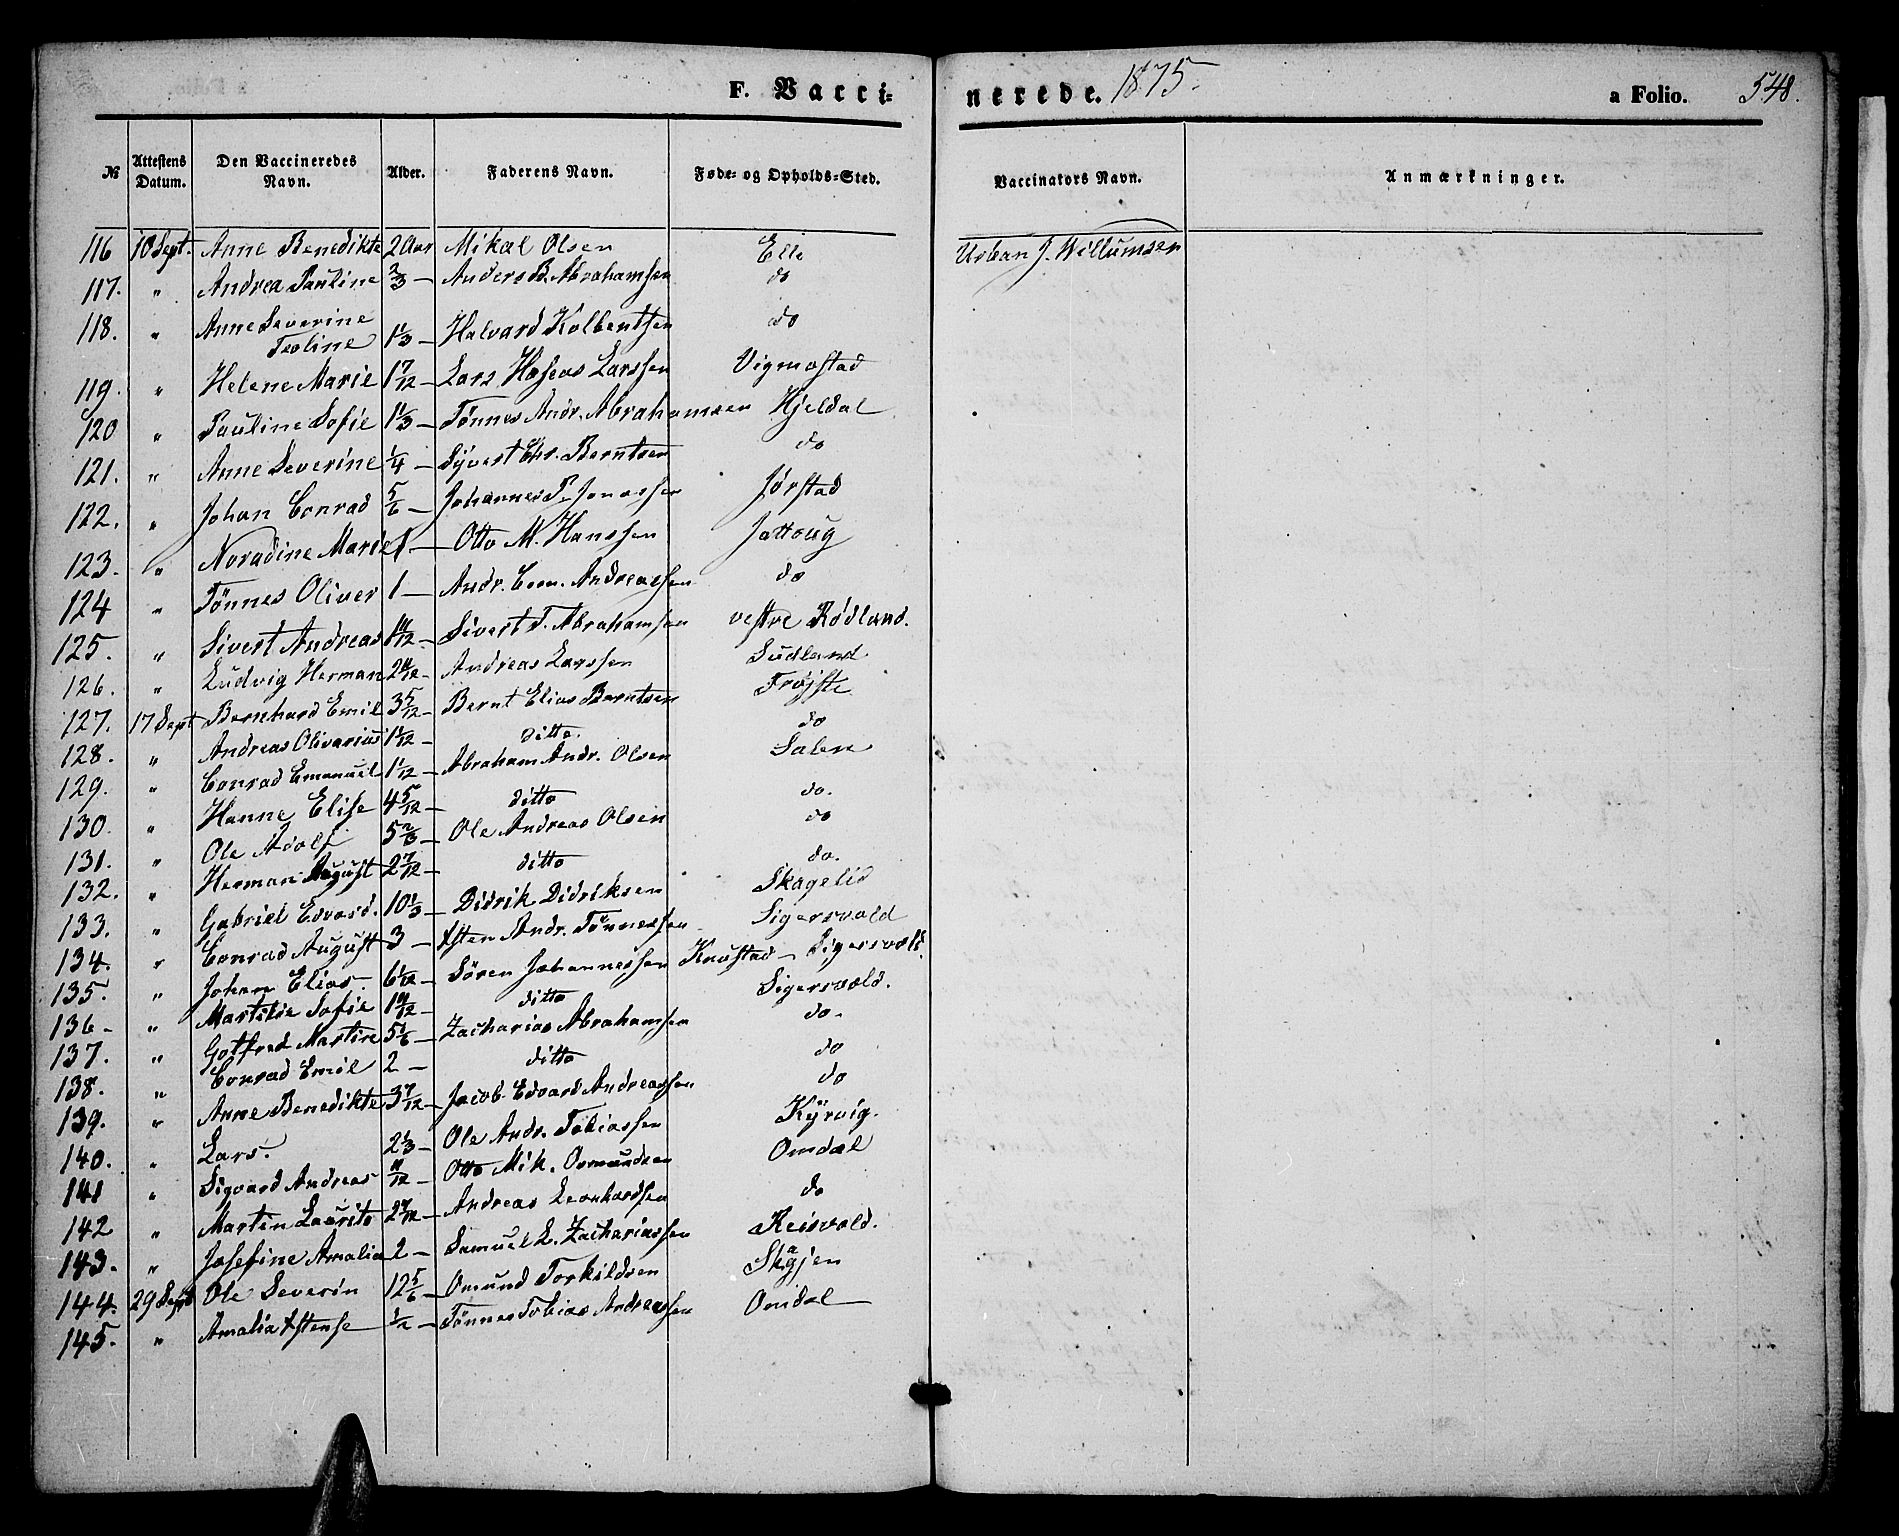 F. Vacci= nerede. 1875. a Folio. 548.
№ Attestens Datum. Den Vaccineredes Navn. Alder. Faderens Navn. Føde= og Opholds=Sted. Vaccinators Navn. Anmærkninger.
116 10 Sept. Anne Benedikte 2 Aar Mikal Olsen Elle Urban J. Willumsen
117. " Andrea Pauline 2/3 — Anders B. Abrahamsen do
118. " Anne Severine Teoline 1 1/3 — Halvard Kolbentsen do
119. " Helene Marie 1 7/12 — Lars Hoseas Larssen Vigmostad
120 " Pauline Sofie 1 1/3 — Tönnes Andr. Abrahamsen Hjeldal
121. " Anne Severine 1/4 — Syvert Chr. Berntsen do
122. " Johan Conrad 5/6 — Johannes P. Jonassen Jørstad
123. " Noradine Marie 1 — Otto M. Hanssen Jattoug
124 " Tönnes Oliver 1 — Andr. Eom. Andreassen do
125. " Sivert Andreas 11/12 — Sivert T. Abrahamsen vestre Rødland.
126. " Ludvig Herman 2 11/12 — Andreas Larssen Sudland
127. 17 Sept Bernhard Emil 3 5/12 — Bernt Elias Berntsen Frøjste
128. " Andreas Olivarius 1 1/12 — ditto. do
129. " Conrad Emanuel 1 1/12 — Abraham Andr. Olsen Salen
130. " Hanne Elise 4 5/12 — ditto do.
131. " Ole Adolf 5 2/3 — Ole Andreas Olsen do
132. " Herman August 2 7/12 — ditto do.
133. " Gabriel Edvard. 10 1/3 — Didrik Didriksen Skagelid
134. " Conrad August 3 — Asten Andr. Tönnessen Sigersvold
135. " Johan Elias. 6 1/12 — Sören Johannessen Knustad — Sigersvold.
136 — " Sofie 1 10/12 — ditto Sigersvold.
137. " Gotfred Martin 5 1/6 — Zacharias Abrahamsen do.
138. " Conrad Emil 2 — ditto do
139. " Anne Benedikte 3 7/12 — Jacob Edvard Andreassen do
140. " Lars. 2 1/3 — Ole Andr. Tobiassen Kÿrvig.
141 " Sigvard Andreas 11/12 — Otto Mik. Osmundsen Omdal
142 " Martin Laurits 2 7/12 — Andreas Leonhardsen do
143. " Josefine Amalia 2 — Samuel L. Zachariassen Reisvold.
144. 29 Sept Ole Severin 12 5/6 — Omund Torkildsen Skøjen
145. " Amalia Astense 1/2 — Tönnes Tobias Andreassen Omdal